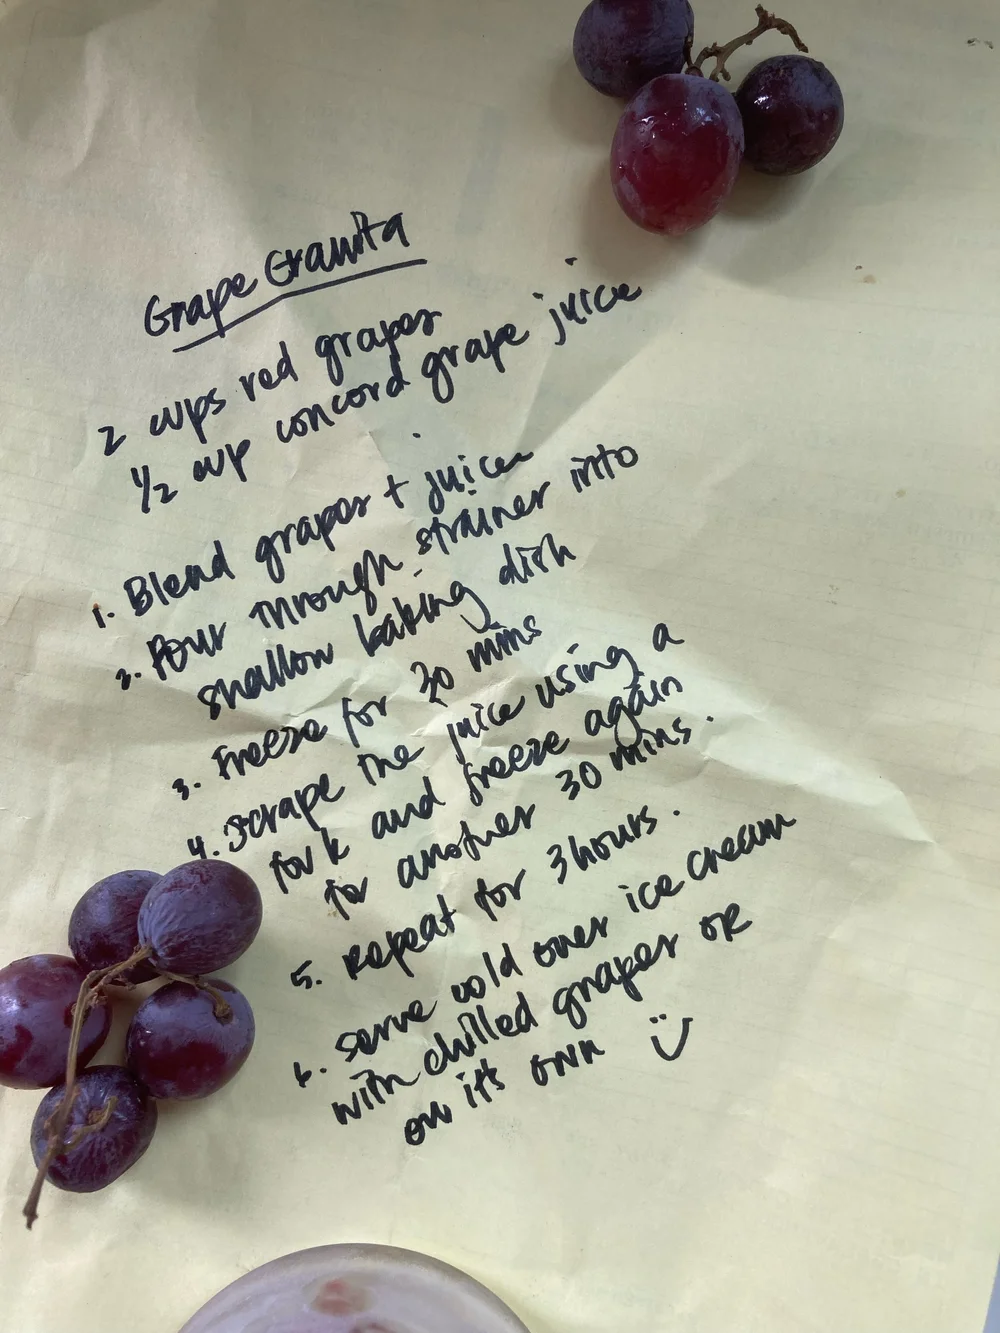 Grape Granita
2 cups red grapes
1/2 cup concord grape juice
1. Blend grapes + juice
2. Pour through strainer into
shallow baking dish
3. Freeze for 30 mins
4. Scrape the juice using a
fork and freeze again
for another 30 mins.
5. Repeat for 3 hours.
6. serve cold over ice cream
with chilled grapes or
on it's own